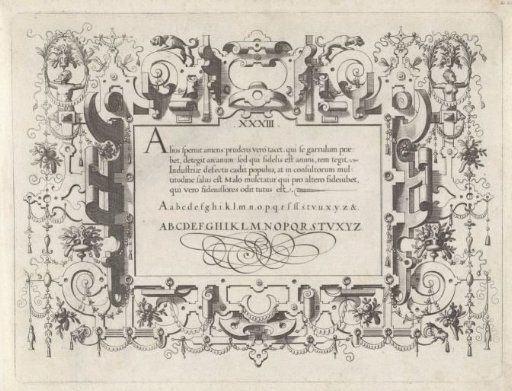 XXXIII
Alius ſpernit amens prudens vero tacet. qui ſe garrulum præ
bet, detegit arcanum ſed qui fidelis eſt animi, rem tegit.
Induſtriæ defectu cadit populus, at in conſultorum mul
titudine ſalus eſt Malo mulctatur qui pro altero fideiubet,
qui vero fideiuſſores odit tutus eſt.
A a b c d e f g h i k l m n o p q r ſ ſſ s t v u x y z &.
A B C D E F G H I K L M N O P Q R S T V X Y Z